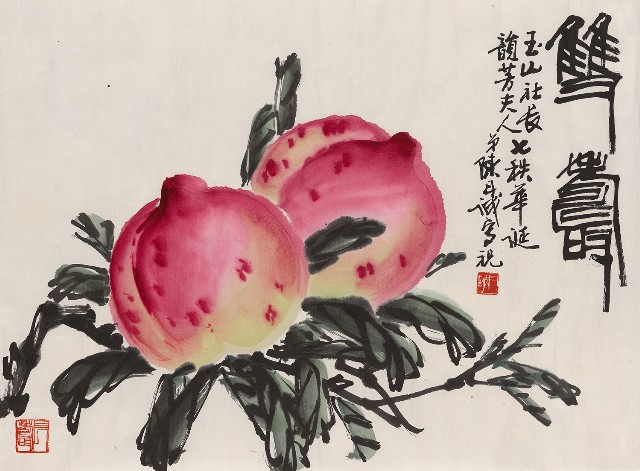 雙壽
玉山社長七秩華誕
韻芳夫人
弟陳丹誠寫祝